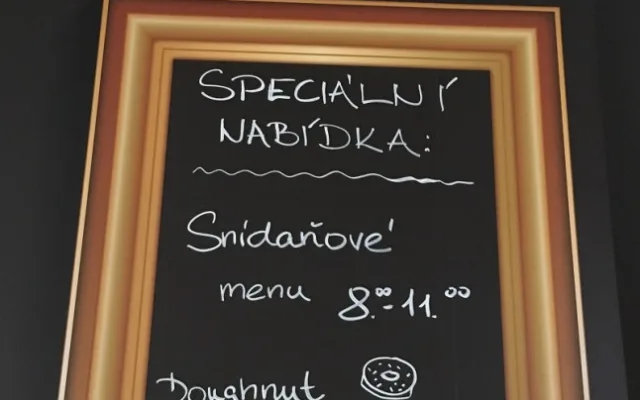 SPECIÁLNÍ
NABÍDKA:
Snídaňové
menu 8.⁰⁰-11.⁰⁰
Doughnut